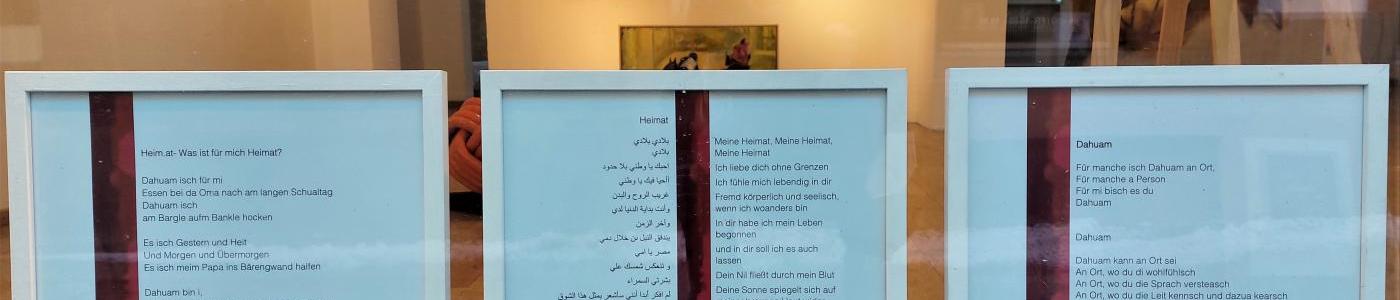 Heim.at- Was ist für mich Heimat?
Dahuam isch für mi
Essen bei da Oma nach am langen Schualtag
Dahuam isch
am Bargle aufm Bankle hocken
Es isch Gestern und Heit
Und Morgen und Übermorgen
Es isch meim Papa ins Bärengwand halfen
Dahuam bin i,
Heimat
بلادي بلادي
بلادي
احبك يا وطني بلا حدود
أحيا فيك يا وطني
غريب الروح والبدن
وأنت بداية الدنيا لدي
وآخر الزمن
يتدفق النيل من خلال دمي
مصر يا امي
و تنعكس شمسك علي
بشرتي السمراء
لم افكر أبدا أنني سأشعر بمثل هذا الشوق
Meine Heimat, Meine Heimat,
Meine Heimat
Ich liebe dich ohne Grenzen
Ich fühle mich lebendig in dir
Fremd körperlich und seelisch,
wenn ich woanders bin
In dir habe ich mein Leben
begonnen
und in dir soll ich es auch
lassen
Dein Nil fließt durch mein Blut
Deine Sonne spiegelt sich auf
Dahuam
Für manche isch Dahuam an Ort,
Für manche a Person
Für mi bisch es du
Dahuam
Dahuam
Dahuam kann an Ort sei
An Ort, wo du di wohlfühlsch
An Ort, wo du die Sprach versteasch
An Ort, wo du die Leit kennsch und dazua kearsch